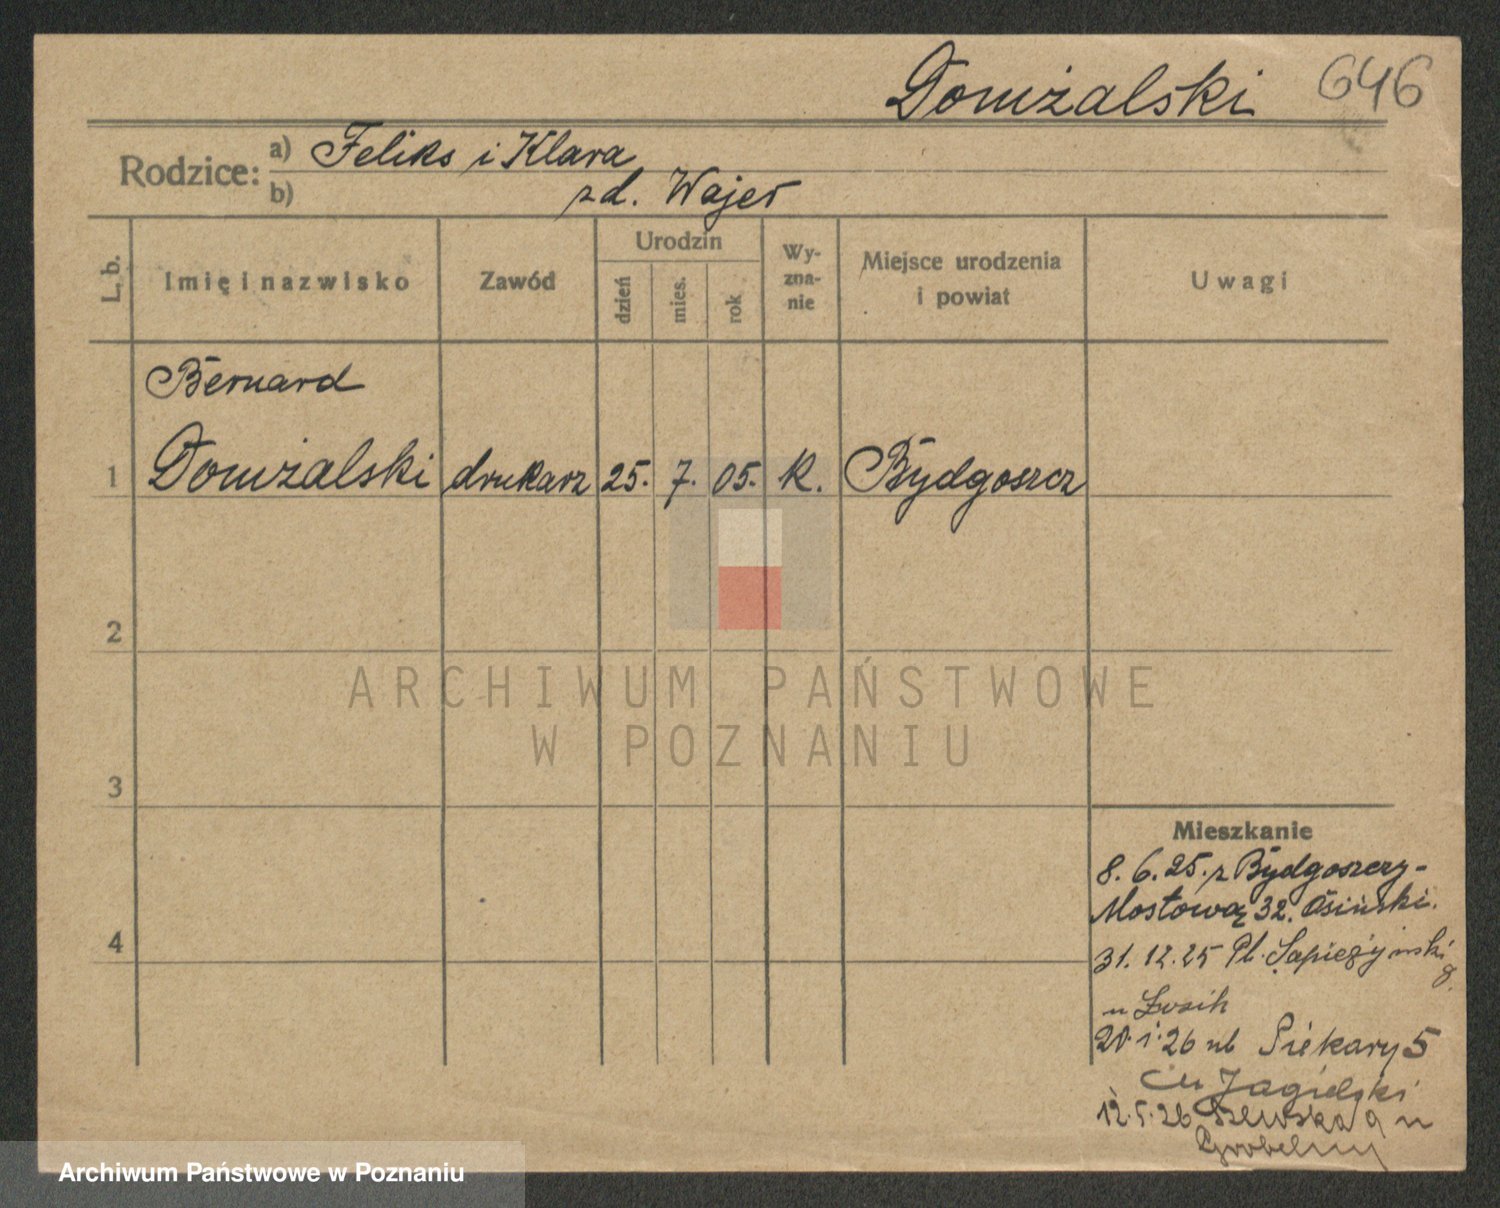 Domżalski 646
Rodzice: a) Feliks i Klara
b) zd. Wajer
L. b. Imię i nazwisko Zawód Urodzin dzień mies. rok Wyznanie Miejsce urodzenia i powiat Uwagi
Bernard
1 Domżalski drukarz 25. 7. 05. k. Bydgoszcz
2
ARCHIWUM PAŃSTWOWE
W POZNANIU
3
Mieszkanie
8. 6. 25. z Bydgoszczy-
Mostowa 32. Osiński.
4
31. 12. 25 Pl. Sapieżyński
u
20. 1. 26 ul Piekary 5
u Jagielski
12. 5. 26 9 u
Archiwum Państwowe w Poznaniu